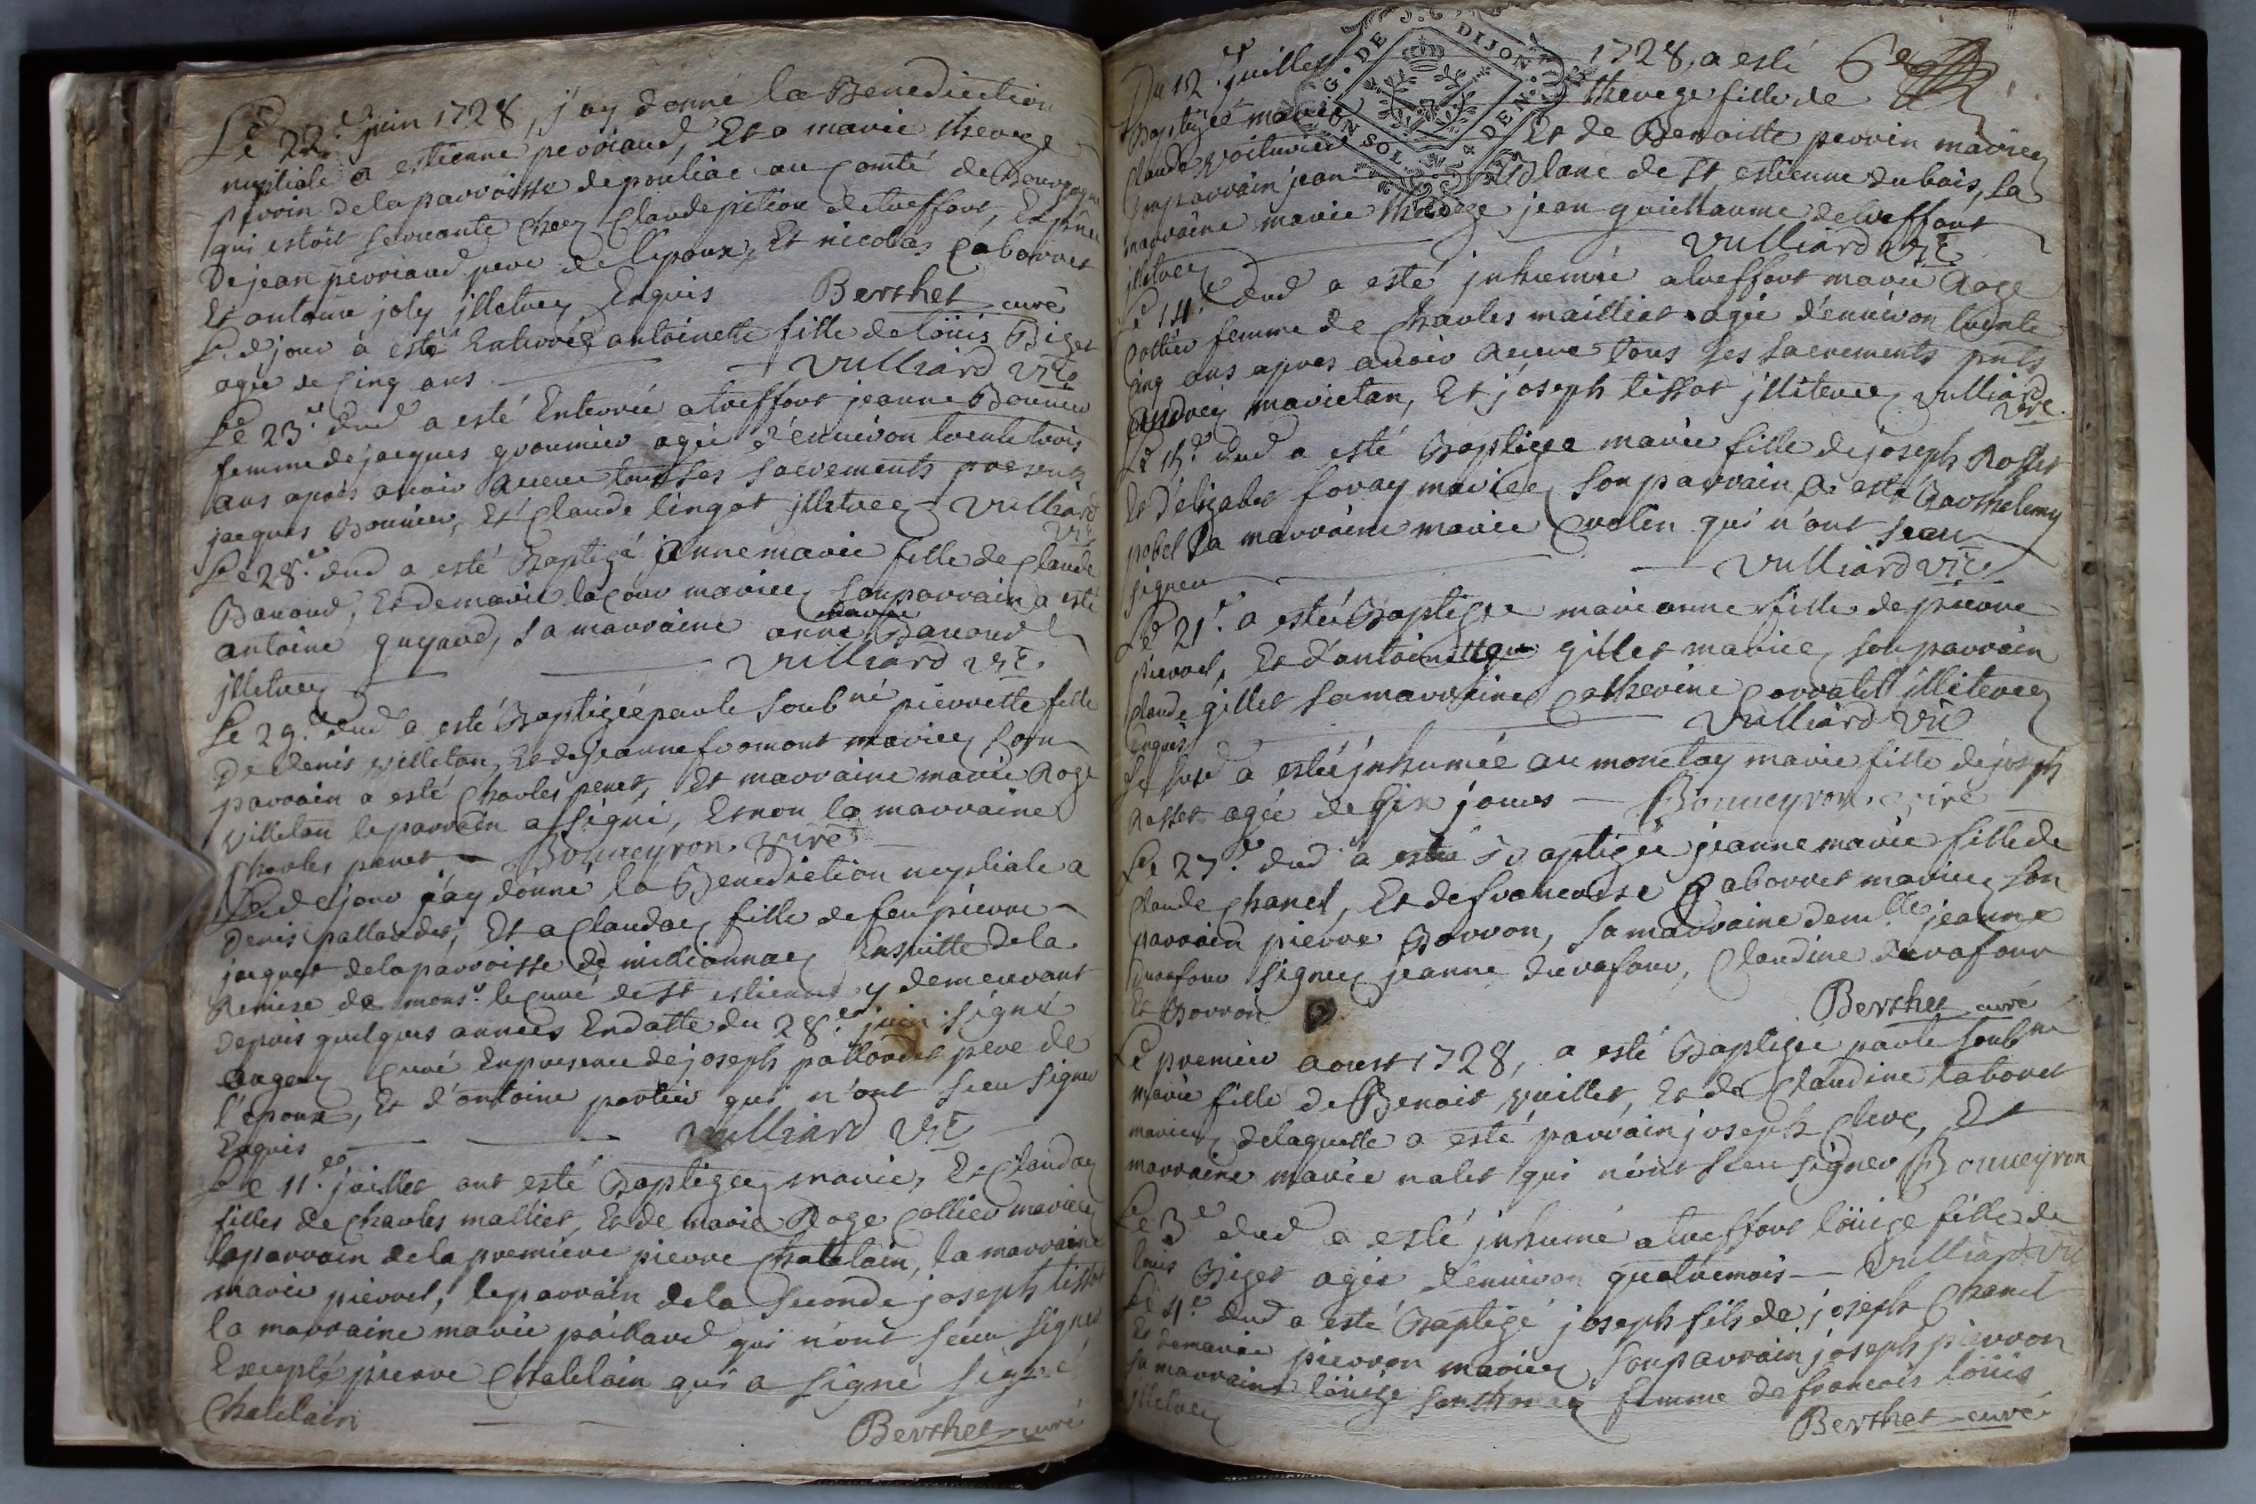 Le 22.e juin 1728, j'ay donné la Benediction
nuptiale a estienne perriaud, Et a marie therege
perrin de la parroisse de pouliac au Comté de Bourgogne
qui estoit servante chez Claude pition de treffort, En pnce
De jean perriaud pere de l'epoux, Et nicolas Caborret
Et antoine joly jlletrez Enquis Berthet curé
Le d jour a esté Enterrée antoinette fille de loüis Biget
agée de Cinq ans Vulliard vic
Le 23.e dud a esté Enterrée a treffort jeanne Bonnier
femme de jacques groumier agée d'enuiron trente trois
ans après auoir receu tous ses sacrements presents
jacques Bonnier, Et Claude lingot jlletrez Vulliard
vic
Le 28.e dud a esté Baptizé jeanne marie fille de Claude
Bauoud, Et de marie la Cour mariez son parrain a esté
antoine guyaud, sa marraine anne marie Bauoud
jlletrez Vulliard vic
Le 29.e dud a esté Baptizée par le soub.né pierrette fille
De denis villetan, Et de jeanne fromont mariez son
parrain a esté Charles penet, Et marraine marie Roze
villetan le parrain a signé, Et non la marraine
Charles penet Bonneyron vire
Le d jour j'ay donné la Benediction nuptiale a
Denis pallandet, Et a Claudaz fille de feu pierre
jacquet de la parroisse de mitionnaz Ensuitte de la
Remise de mons.r le curé de st estienne y demeurant
Depuis quelques années En datte du 28.e juin signé
Curé En presence de joseph pallandet pere de
l'epoux, Et d'antoine portier qui n'ont sceu signer
Enquis Vulliard vic
Le 11.e juillet ont esté Baptizez marie, Et Claudaz
filles de Charles malliet, Et de marie Roze Cottier mariez
le parrain de la premiere pierre Chatelain, la marraine
marie pierret, le parrain de la seconde joseph tissot
la marraine marie paillard qui n'ont sceu signer
Excepté pierre Chatelain qui a signé signé
Chatelain
Berthet curé
Du 12.e juillet 1728, a esté 6e
Baptizée marie therege fille de
Claude voiturier Et de Benoitte perrin mariez
son parrain jean Blanc de st estienne du bois, sa
marraine marie therege jean guillaume de treffort
jlletrez Vulliard vic
Le 14.e dud a esté jnhumée a treffort marie Roze
Cottier femme de Charles mailliet agée d'enuiron trente
Cinq ans apres auoir receu tous ses sacrements pnts
andrez marietan, Et joseph tissot jlliterez Vulliard
vic
Le 15.e dud a esté Baptizée marie fille de joseph Rosset
Et d'elizabet foray mariez son parrain a esté Barthelemy
pobel sa marraine marie Crolin qui n'ont sceu
signer Vulliard vic
Le 21.e a esté Baptizée marie anne fille de pierre
pierret, Et d'antoinette gillet mariez son parrain
Claude gillet sa marraine Catherine Corralet jlliterez
Enquis Vulliard vic
Le susd a esté jnhumée au monetay marie fille de joseph
Rosset agée de six jours Bonneyron vire
Le 27.e dud a esté Baptizée jeanne marie fille de
Claude Chanel, Et de francoise Gaborret mariez son
parrain pierre Borron, sa marraine dem.lle jeanne
Durafour signez jeanne durafour, Claudine durafour
Et Borron
Berthet curé
Le premier aoust 1728, a esté Baptizée par le soub.né
marie fille de Benoit vuillet, Et de Claudine taboret
mariez de laquelle a esté parrain joseph Clere, Et
marraine marie nalet qui n'ont sceu signer Bonneyron
Le 3.e dud a esté jnhumé a treffort loüise fille de
loüis Biget agée d'enuiron quatre mois Vulliard vic
Le 4.e dud a esté Baptizé joseph fils de joseph Chanel
Et de marie pierron mariez, son parrain joseph pierron
sa marraine loüise femme de francois loüis
jlletrez
Berthet curé
G. DE DIJON
UN SOL 4 DEN.